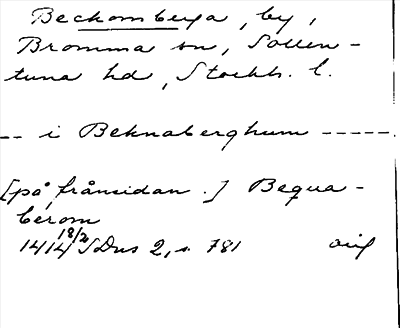 Beckomberga, by,
Bromma sn, Sollen-
tuna hd, Stockh. l.
-- i Beknaberghum -----
[på frånsidan.] Bequa-
berom
1414 18/2 SDns 2, s. 781